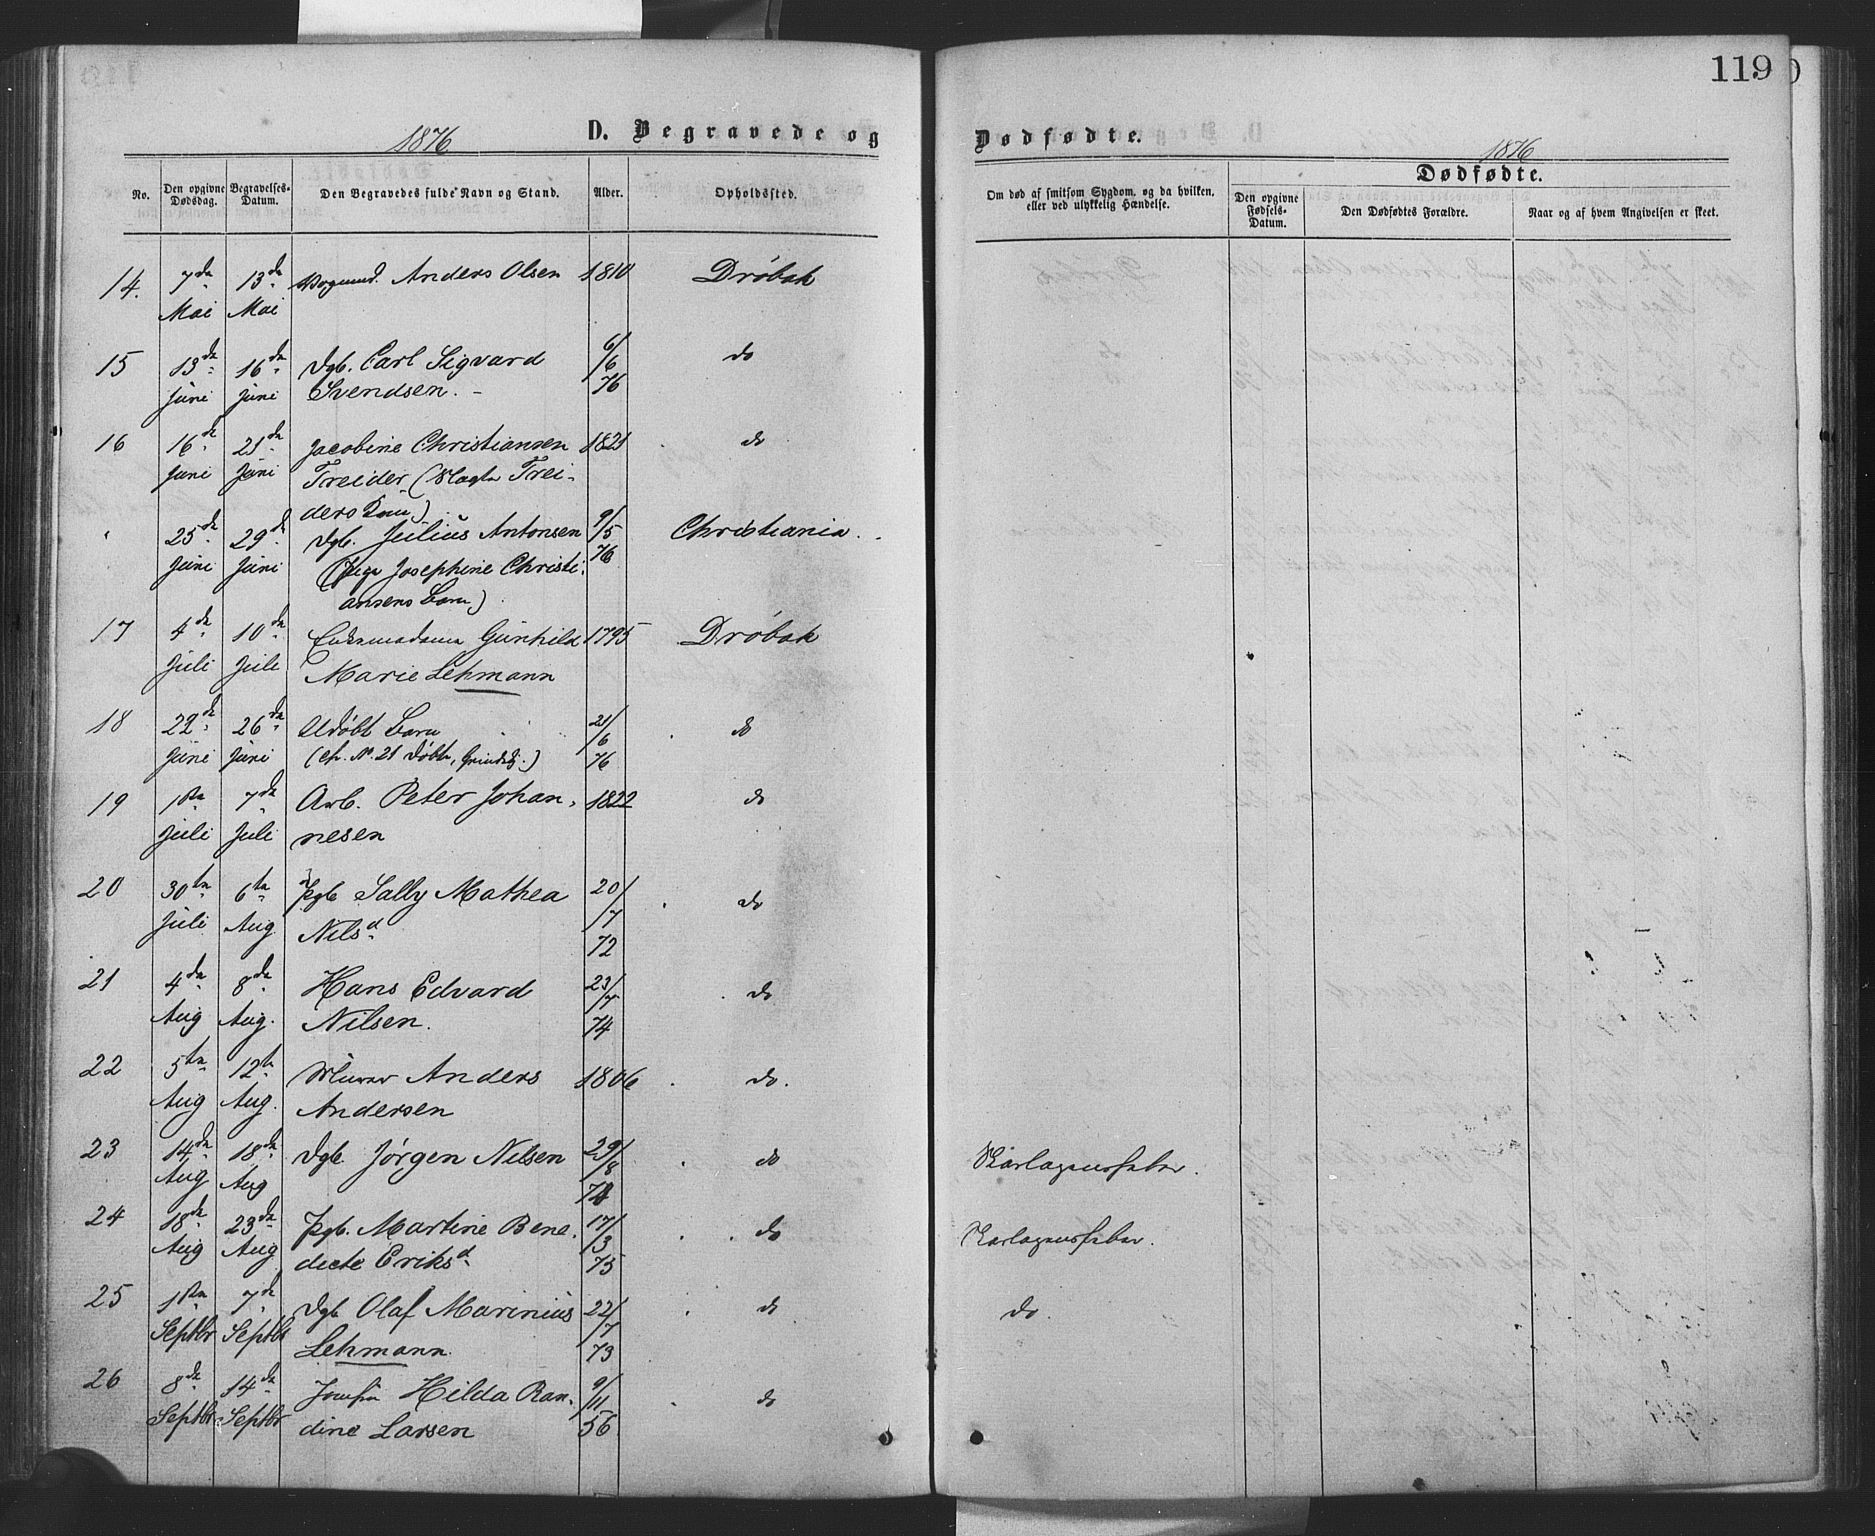 119
1876
D. Begravede og
Dødfødte.
1876
Dødfødte.
No.
Den opgivne Dødsdag.
Begravelses-Datum.
Den Begravedes fulde Navn og Stand.
Alder.
Opholdssted.
Om død af smitsom Sygdom, og da hvilken,
eller ved ulykkelig Hændelse.
Den opgivne Fødsels-Datum.
Den Dødfødtes Forældre.
Naar og af hvem Angivelsen er skeet.
14. 7de 13de Anders Olsen 1810 Drøbak
Mai Mai
15 13de 16de Dgb. Carl Sigvard 6/6 do
Juni Juni Svendsen. 76
16 16de 21de Jacobine Christiansen 1821 do
Juni Juni Treider (Slagter Trei-
ders Kone)
25de 29de Dgb. Julius Antonsen 9/5 Christiania.
Juni Juni (Pige Josephine Christi- 76
ansens Barn)
17 4de 10de Enkemadame Gunhild 1795 Drøbak
Juli Juli Marie Lehmann
18 22de 26de Udøbt Barn 21/6 do
Juni Juni (cfr. No. 21 Døbte, ) 76
19 1ste 7de Arb. Peter Johan- 1822 do
Juli Juli nesen
20 30te 6te Pgb Sally Mathea 20/7 do
Juli Aug Nilsd. 72
21 4de 8de Hans Edvard 23/7 do
Aug Aug. Nilsen. 74
22 5te 12te Murer Anders 1806 do.
Aug Aug. Andersen
23 14de 18de Dgb. Jørgen Nilsen 29/8 do Skarlagensfeber.
Aug Aug
24 18de 23de Pgb. Martine Bene- 17/3 do Skarlagensfeber.
Aug Aug dicte Eriksd. 75
25 1ste 7de Dgb Olaf Marinius 22/7 do do.
Septbr Septbr Lehmann. 73
26 8de 14de Jomfru Hilda Ran- 9/11 do
Septbr Septbr dine Larsen 56